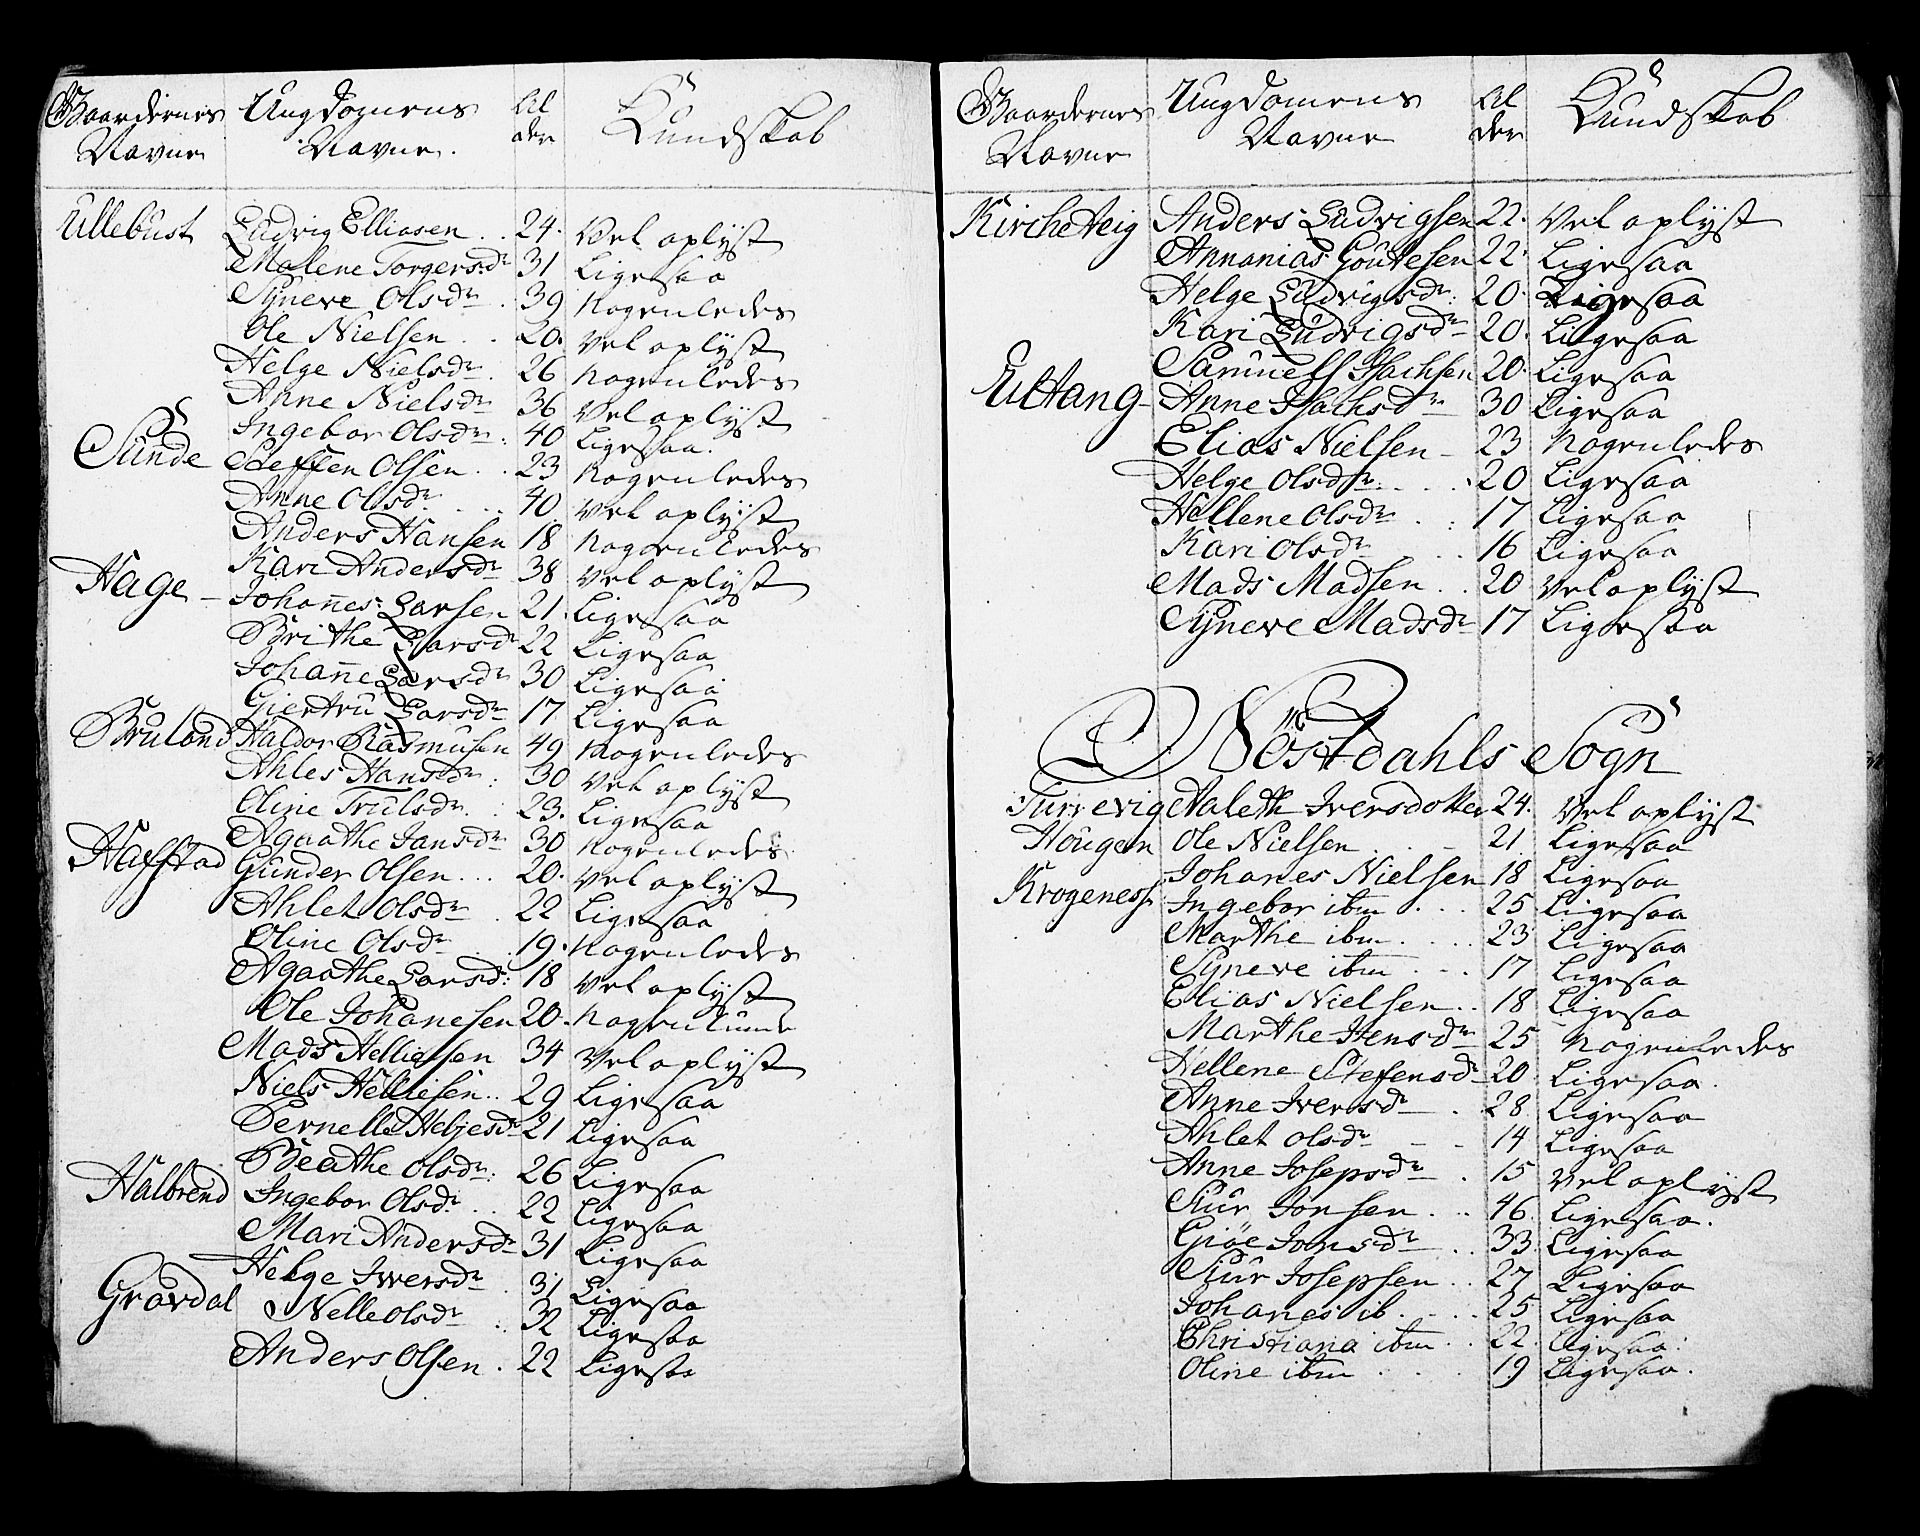 Gaardernes Navne | Ungdomens Navne. | Alder | Kundskab
Ullebust | Ludvig Elliasen .. | 24. | Vel oplyst
Malene Torgersdr | 31 | Ligesaa
Synneve Olsdr . | 39 | Nogenledes
Ole Nielsen .. | 20. | Vel oplyst
Helge Nielsdr . | 26 | Nogenledes
Anne Nielsdr | 36 | Vel oplyst
Ingebor Olsdr . | 40 | Ligesaa.
Sunde | Steffen Olsen .. | 23 | Nogenledes
Anne Olsdr .... | 40 | Vel oplyst
Anders Hansen | 18 | Nogenledes
Hage | Kari Andersdr | 38 | Vel oplyst
Johañes Larsen | 21. | Ligesaa
Brithe Larsdr | 22 | Ligesaa
Johañe Larsdr | 30 | Ligesaa
Giertru Larsdr | 17. | Ligesaa
Bruland | Haldor Rasmusen | 49 | Nogenledes
Ahles Hansdr . | 30 | Vel oplyst
Oline Trulsdr . | 23. | Ligesaa
Agaathe Jansdr | 30 | Nogenledes
Hafstad | Gunder Olsen ... | 20. | Vel oplyst
Ahlet Olsdr . | 22 | Ligesaa
Oline Olsdr .. | 19. | Nogenledes
Agaathe Larsdr: | 18 | Vel oplyst
Ole Johanesen | 20. |
Mads Helliesen | 34 | Vel oplyst
Niels Helliesen .. | 29 | Ligesaa
Pernelle Heljesdr | 21 | Ligesaa
Halbrend | Beathe Olsdr: | 26 | Ligesaa
Ingebor Olsdr ... | 22 | Ligesaa
Mari Andersdr | 31 | Ligesaa
Gravdal | Helge Iversdr . | 31 | Ligesaa
Nelle Olsdr .. | 32 | Ligesaa
Anders Olsen . | 22 | Ligesaa
Gaardernes Navne | Ungdomens Navne | Alder | Kundskab
Kircheteig | Anders Ludvigsen | 22. | Vel oplyst
Annanias Goutesen | 22. | Ligesaa
Helge Ludvigsdr: | 20. | Ligesaa
Kari Ludvigsdr | 20. | Ligesaa
Samuell Isachsen | 20. | Ligesaa
Eltang | Anne Isachsdr | 30 | Ligesaa
Elias Nielsen | 23 | Nogenledes
Helge Olsdr .... | 20 | Ligesaa
Hellene Olsdr .. | 17 | Ligesaa
Kari Olsdr ... | 16 | Ligesaa
Mads Madsen .. | 20 | Vel oplyst
Syneve Madsdr | 17 | Ligesaa
Nöstdahls Sogn
Aaleth Iversdotter | 24. | Vel oplyst
Hougen | Ole Nielsen .. | 21 | Ligesaa
Krogeness | Johanes Nielsen | 18 | Ligesaa
Ingebor ibm ... | 25 | Ligesaa
Marthe ibm .... | 23 | Ligesaa
Syneve ibm ... | 17 | Ligesaa
Elias Nielsen .. | 18 | Ligesaa
Marthe Hensdr | 25 | Nogenledes
Hellene Stefensdr | 20 | Ligesaa.
Anne Iversdr . | 28 | Ligesaa
Ahlet Olsdr | 14 | Ligesaa
Anne Josepsdr . | 15 | Vel oplyst
Siur Jonsen ... | 46 | Ligesaa.
Giöe Jonsdr .. | 33 | Ligesaa
Siur Josepsen .. | 27 | Ligesaa
Johanes ib .... | 25 | Ligesaa
Christiana ibm .. | 22. | Ligesaa.
Oline ibm .... | 19 | Ligesaa.